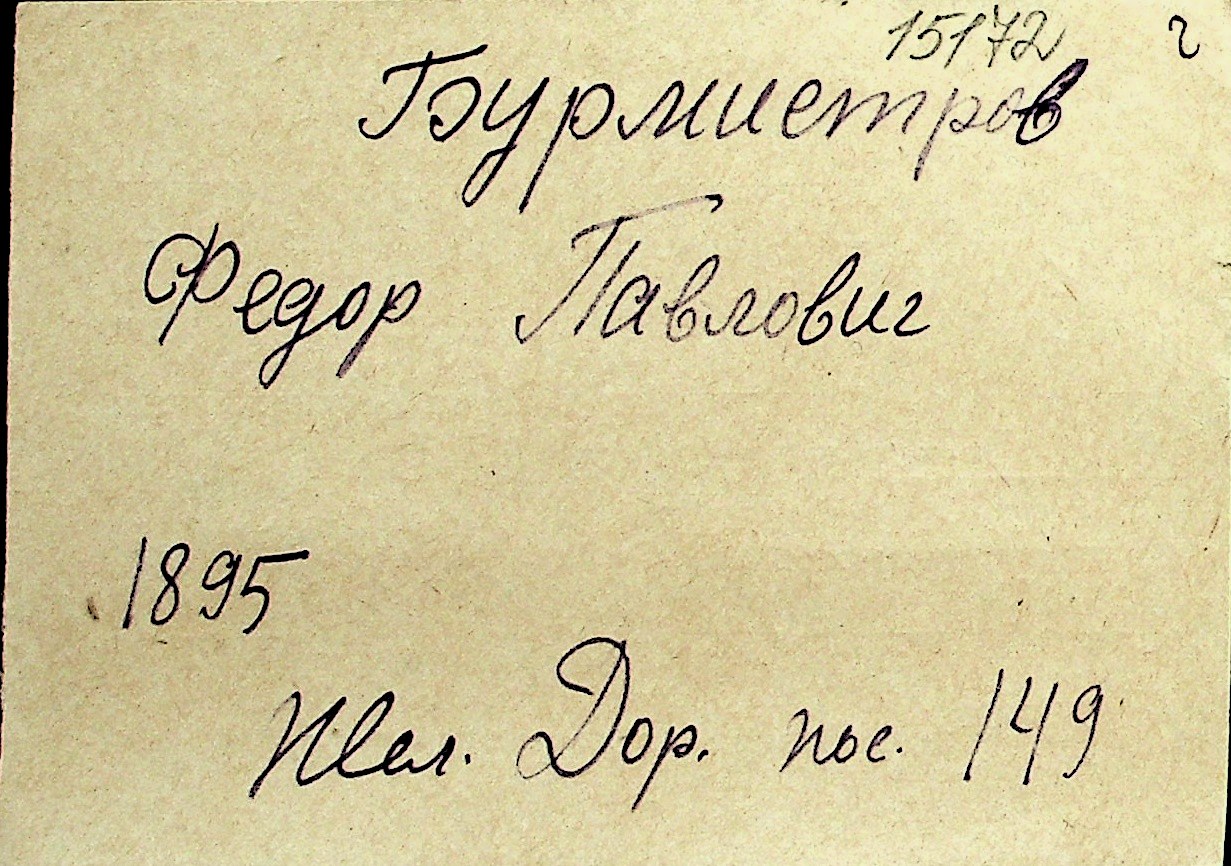 15172 г
Бурмистров
Федор Павлович
1895
Жел. Дор. пос. 149